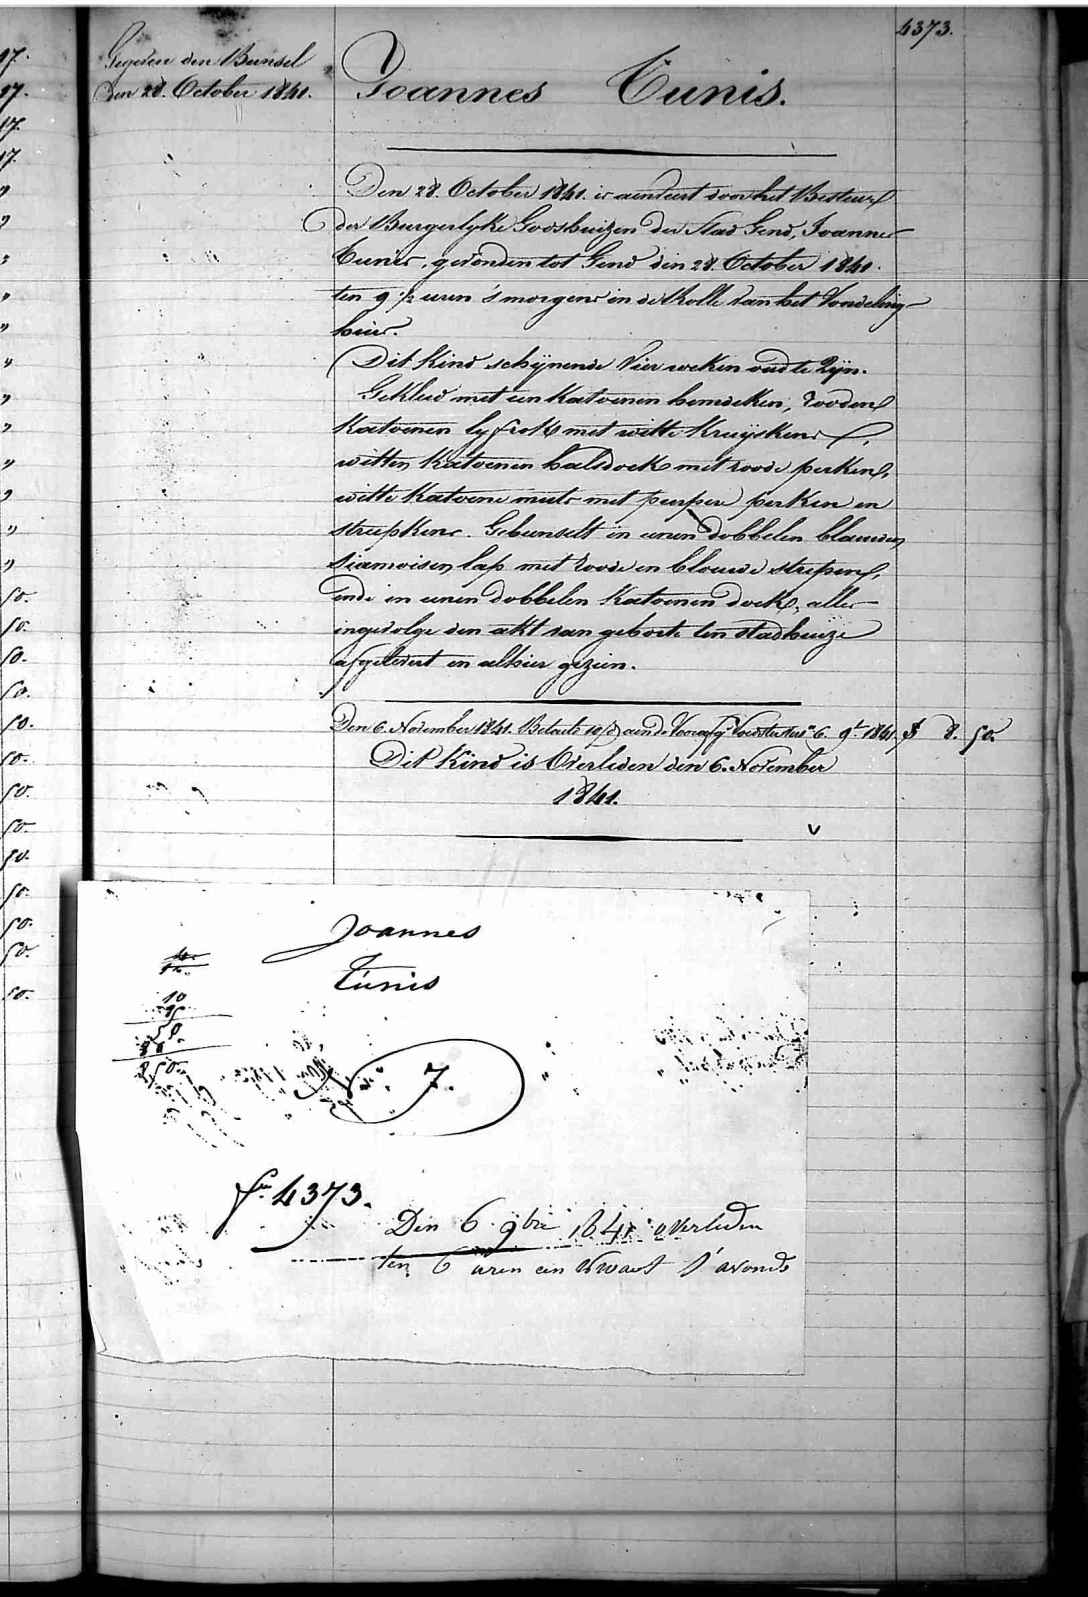 4373.
Gegeven den Bunsel
den 28. October 1841.
Joannes Tunis.
Den 28. October 1841. is aenveert door het Bestuer
der Burgerlyke Godshuizen der Stad Gend, Joannes
Tunis, gevonden tot Gend den 28. October 1841.
ten 9 ½ uren 's morgens in de Rolle van het Vondeling-
huis.
Dit Kind schynende Vier weken oud te Zyn.
Gekleed met een Katoenen hemdeken, rooden
Katoenen lyfrok met witte Kruyskens,
witten Katoenen halsdoek met roode perken,
witte Katoene muts met purpere perken en
streepkens. Gebunselt in eenen dobbelen blauwen
siamoisen lap met roode en blauwe strepen,
ende in eenen dobbelen Katoenen doek, alles
ingevolge den akt van geboorte ten stadhuize
afgelevert en alhier gezien.
Den 6. November 1841. Betaelt 10/d aen de 6. 9bre 1841. 8. 50.
Dit Kind is Overleden den 6. November
1841.
Joannes
Tunis
10
7.
fo. 4373.
Den 6 9bre 1841 overleden
ten 6 uren een kwaert s'avonds
17.
17.
17.
17.
"
"
"
"
"
"
"
"
"
"
"
"
50.
50.
50.
50.
50.
50.
50.
50.
50.
50.
50.
50.
50.